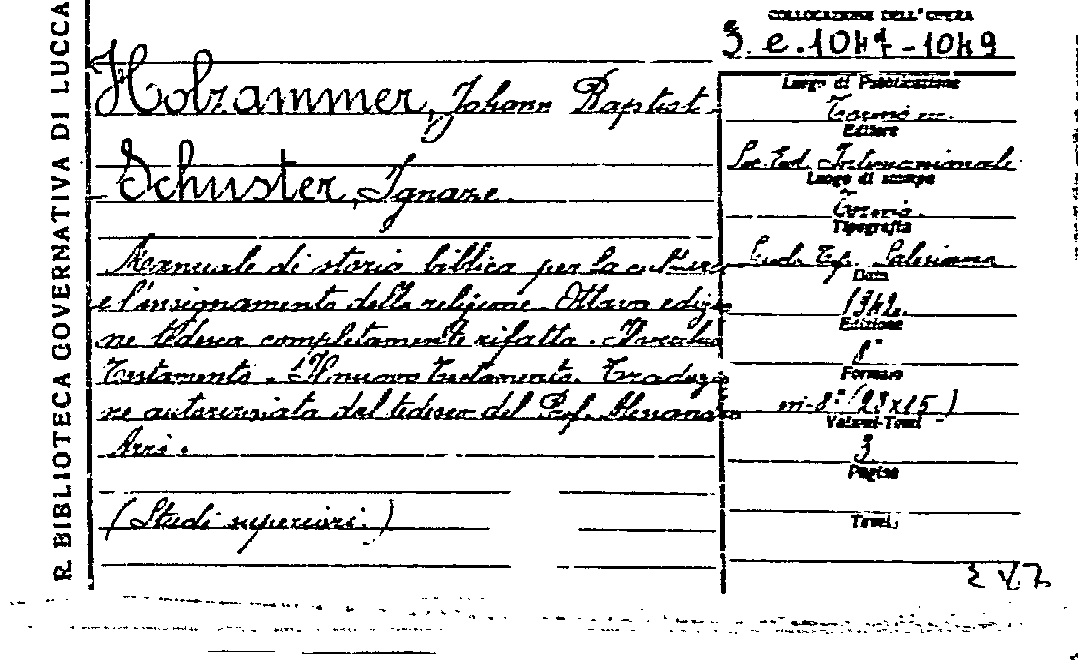 R. BIBLIOTECA GOVERNATIVA DI LUCCA
COLLOCAZIONE DELL'OPERA
3. e. 1047-1049
Holzammer, Johann Baptist -
Schuster, Ignaze.
Manuale di storia biblica per la cultura
e l'insegnamento della religione. Ottava edizio
ne tedesca completamente rifatta.
Testamento. Il nuovo Testamento. Traduzio
ne autorizzata dal tedesco del Prof. Alessandro
Arri.
(Studi superiori.)
Luogo di Pubblicazione
Torino
Editore
Soc. Ed. Internazionale
Luogo di stampa
Torino.
Tipografia
Scuola Tip. Salesiana
Data
1942.
Edizione
8ª
Formato
in-8° (23x15)
Volumi-Tomi
3
Pagine
Tavol.